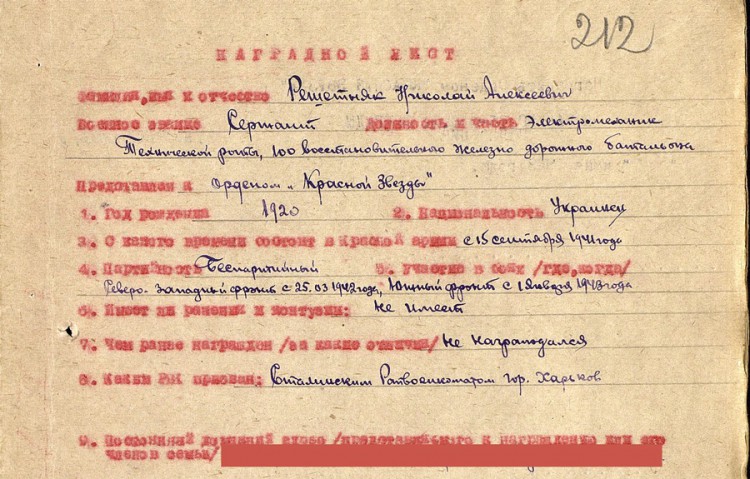 212
НАГРАДНОЙ ЛИСТ
Фамилия, имя и отчество Решетняк Николай Алексеевич
Военное звание Сержант Должность и часть Электромеханик
Технической роты, 100 восстановительного железно дорожного батальона
Представлен к орденом "Красной Звезды"
1. Год рождения 1920 2. Национальность Украинец
3. С какого времени состоит в Красной армии с 15 сентября 1941 года
4. Партийность Беспартийный 5. участие в боях /где, когда/
Северо-Западный фронт с 25.03 1942 года, Южный фронт с 1 января 1943 года
6. Имеет ли ранения и контузии: не имеет
7. Чем ранее награжден /за какие отличия/ не награждался
8. Каким РВК призван: Сталинским Райвоенкоматом гор. Харьков
9. Постоянный домашний адрес /представляемого к награждению или его
членов семьи/